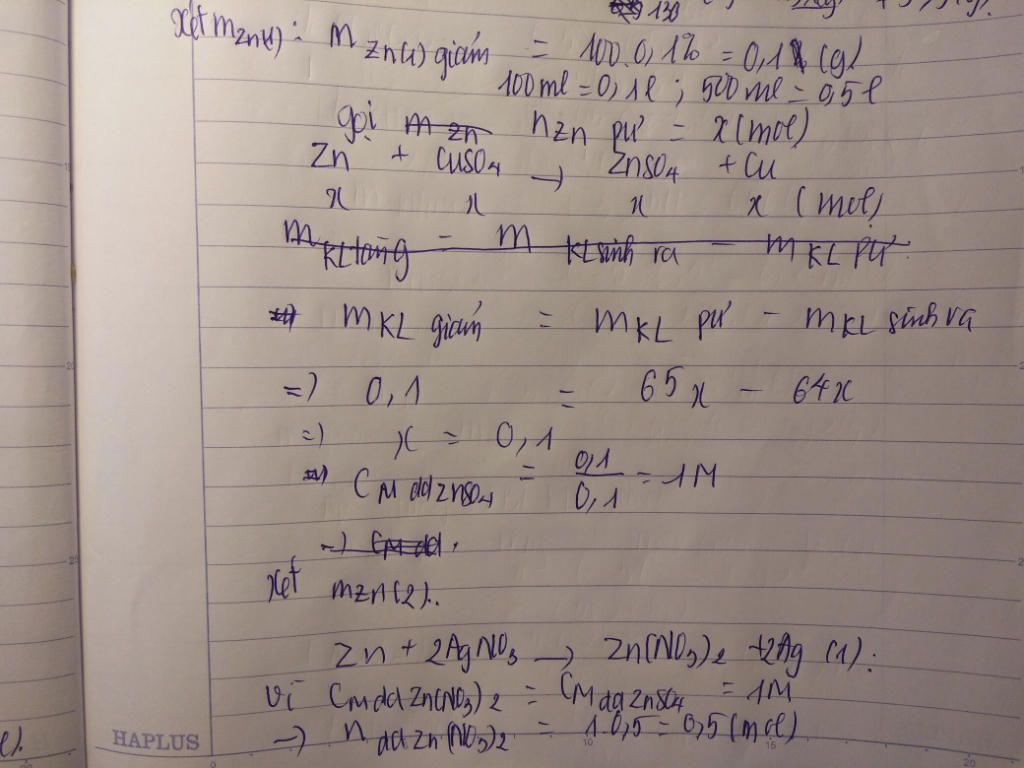 130
xét mZn(1): m Zn(1) giảm = 100.0,1% = 0,1 (g)
100ml = 0,1l ; 500ml = 0,5l
gọi m Zn nZn pứ = x (mol)
Zn + CuSO4 → ZnSO4 + Cu
x x x x (mol)
m KL tăng = m KL sinh ra - m KL pứ
m KL giảm = m KL pứ - m KL sinh ra
=) 0,1 = 65x - 64x
=) x = 0,1
=) CM dd ZnSO4 = 0,1/0,1 = 1M
=) CM dd.
Xét mZn(2):.
Zn + 2AgNO3 → Zn(NO3)2 + 2Ag (1):
Vì CM dd Zn(NO3)2 = CM dd ZnSO4 = 1M
→ n dd Zn(NO3)2 = 1.0,5 = 0,5 (mol)
HAPLUS